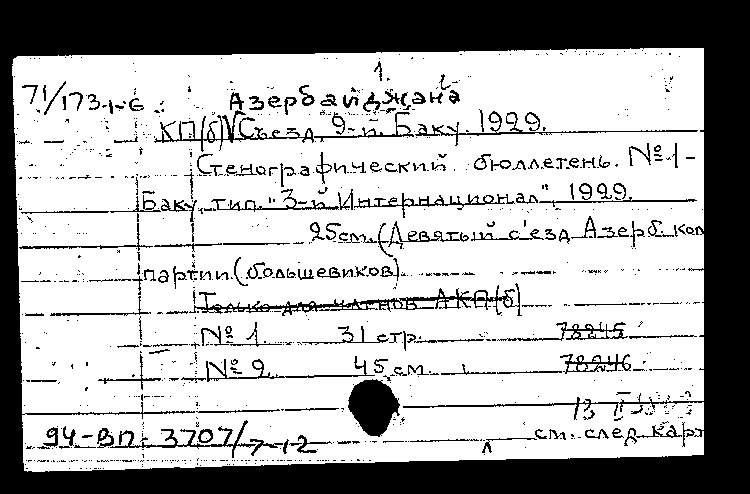 1.
71/173-1-6 Азербайджана
КП(б) Съезд, 9-й. Баку. 1929.
Стенографический бюллетень. № 1-
Баку, тип. "3-й Интернационал", 1929.
25см. (Девятый с'езд Азерб. ком
партии (большевиков)
Только для членов АКП(б)
№ 1 31 стр. 78245
№ 2. 45 см. 78246
13 II
94-ВП-3707/7-1-2 см. след. карт